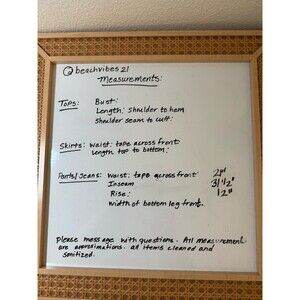 @beachvibes21
Measurements:
Tops: Bust:
Length: Shoulder to hem
Shoulder seam to cuff:
Skirts: Waist: tape across front
Length top to bottom:
Pants/Jeans: Waist: tape across front
Inseam 31 1/2"
Rise: 12"
Width of bottom leg front:
Please message with questions. All measurement
are approximations. All items cleaned and
sanitized.